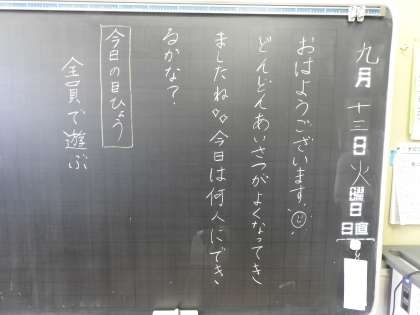 九月十三日火曜日
日直
おはようございます。
どんどんあいさつがよくなってき
ましたね。今日は何人にでき
るかな？
今日の目ひょう
全員で遊ぶ